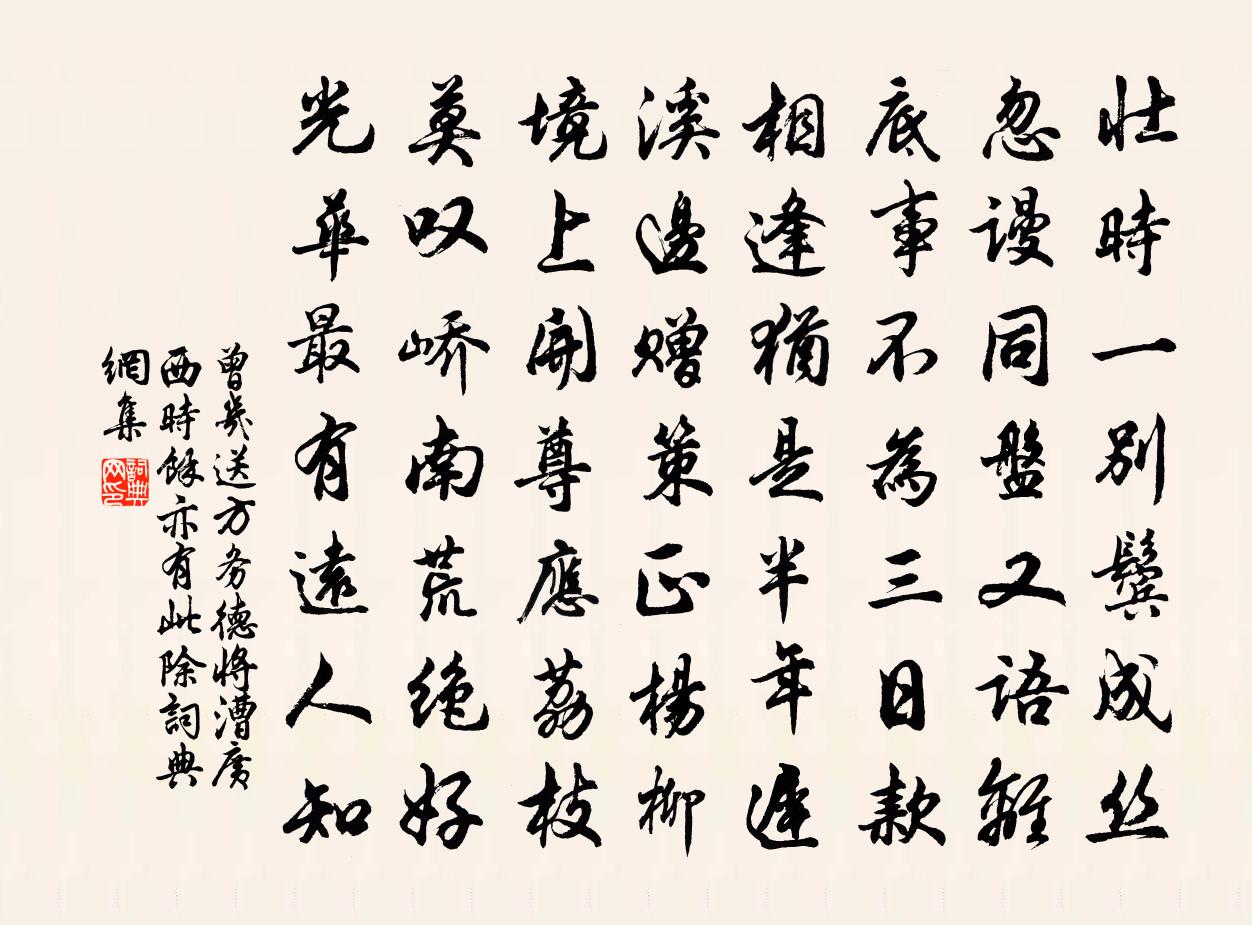 壮時一別鬢成丝
忽謾同盤又語離
底事不為三日款
相逢猶是半年遲
溪邊赠策正楊柳
境上開尊應荔枝
莫叹峤南荒绝好
光華最有遠人知
曾幾送方务德将漕廣
西時馀亦有此除詞典
網集
詞典网印